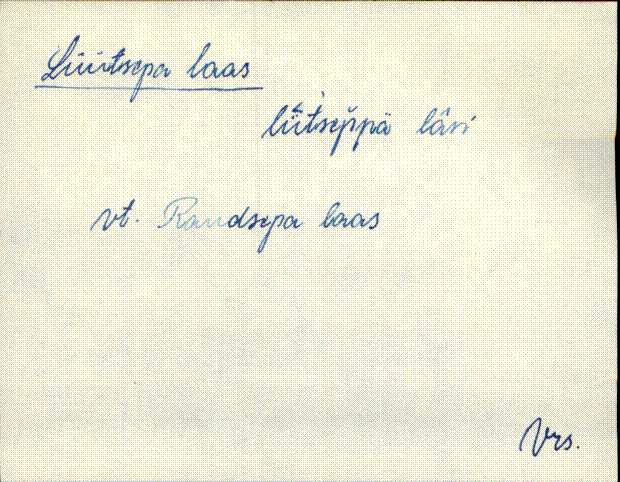 Lüütsepa laas
lütseppä lāsi
vt. Raudsepa laas
Vrs.